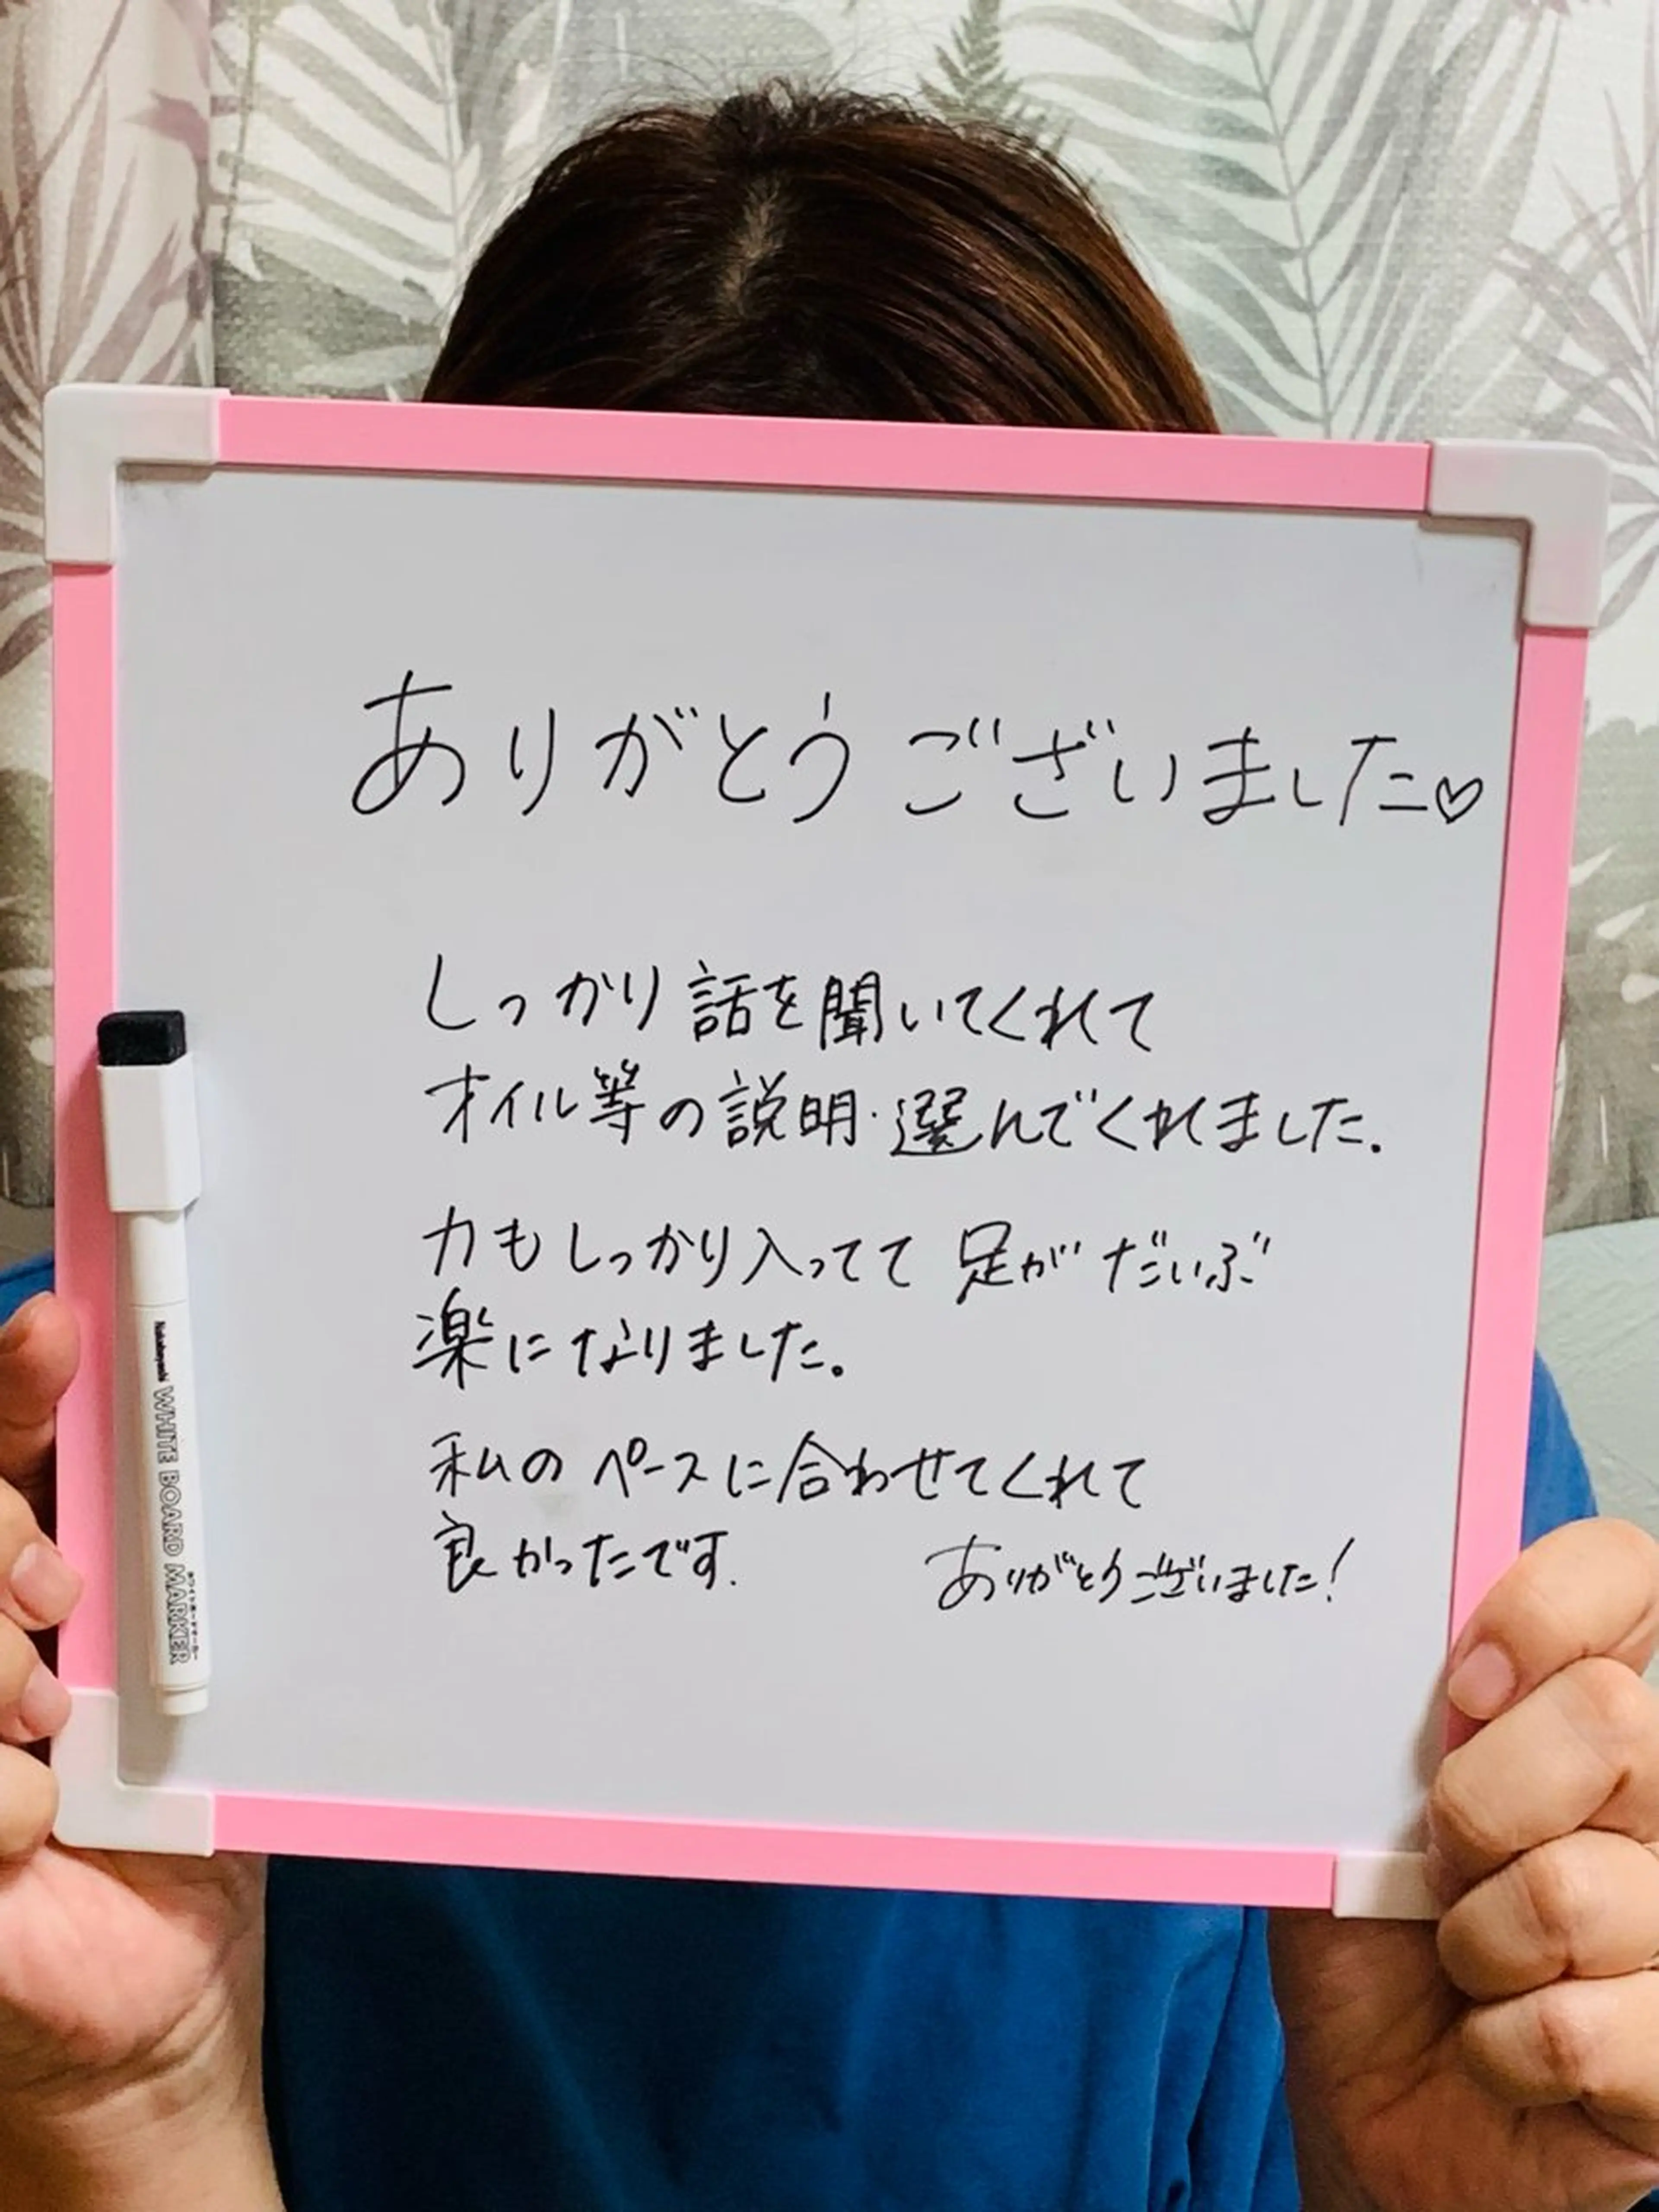 ありがとうございました♡
しっかり話を聞いてくれて
オイル等の説明・選んでくれました.
力もしっかり入ってて 足がだいぶ
楽になりました。
私のペースに合わせてくれて
良かったです.
ありがとうございました!
Nakabayashi WHITE BOARD MARKER
ホワイトボードマーカー